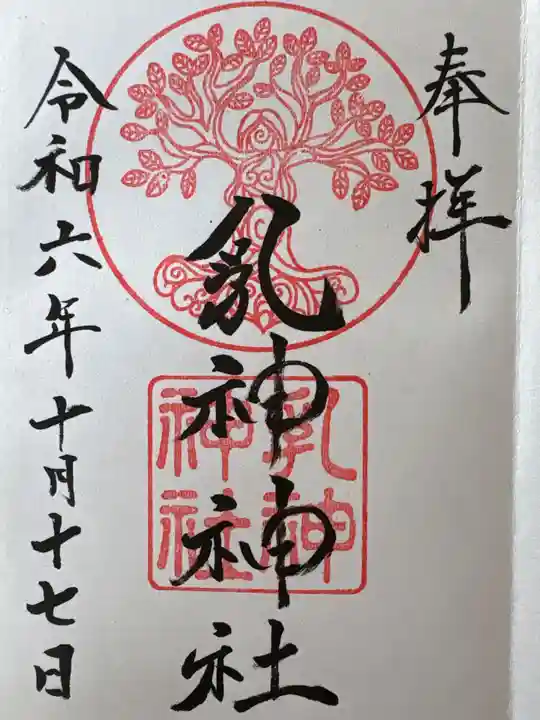 奉拝
乳神神社
乳神
神社
令和六年十月十七日